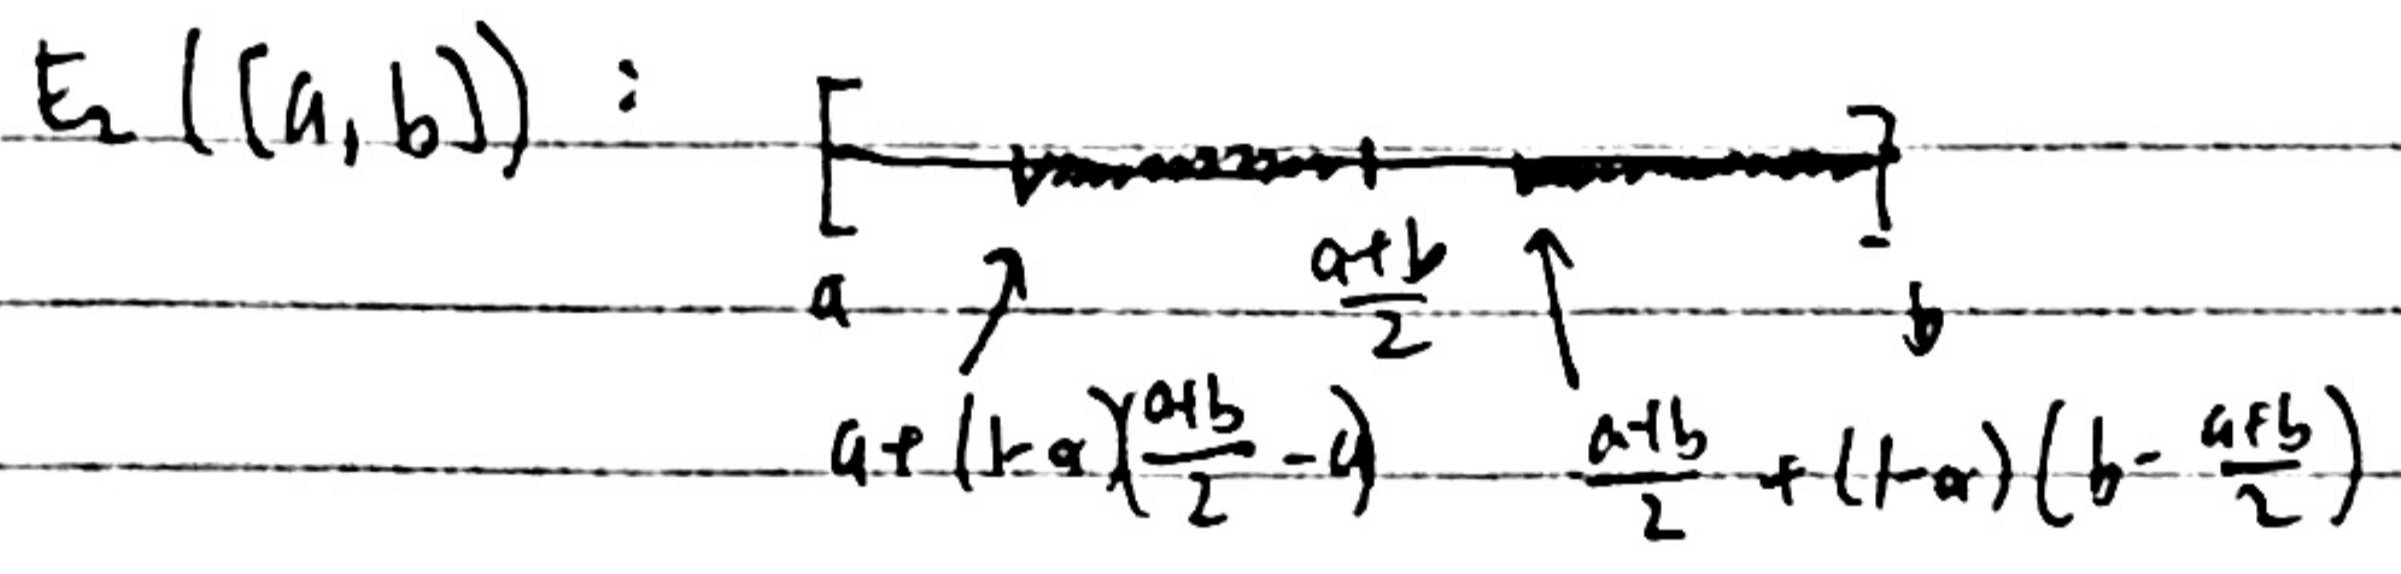 E₂ ([a, b]) :
a (a+b)/2 b
a + (1-α)((a+b)/2 - a) (a+b)/2 + (1-α)(b - (a+b)/2)